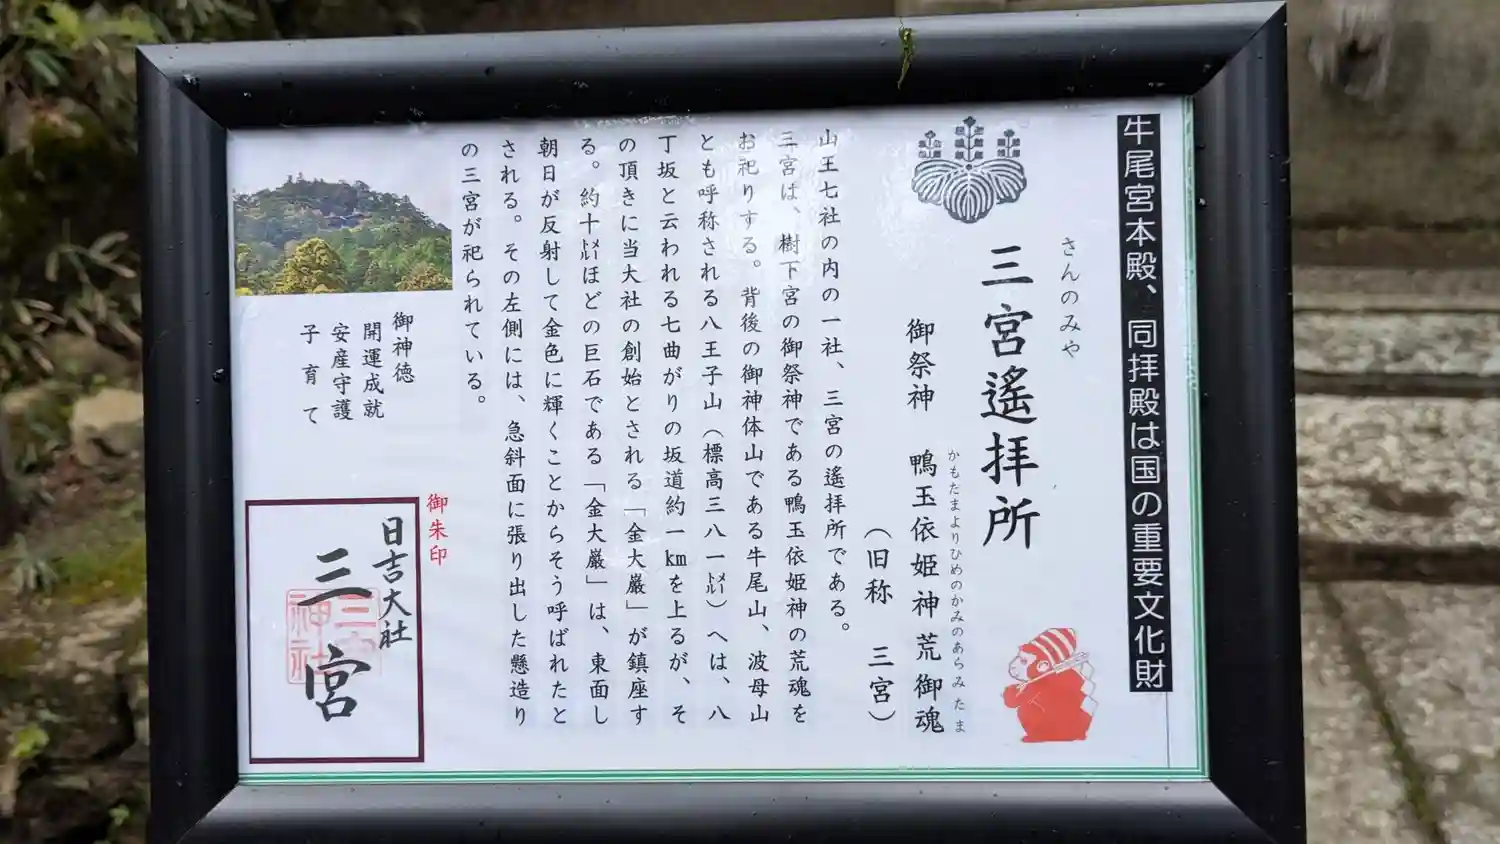 牛尾宮本殿、同拝殿は国の重要文化財
さんのみや
三宮遙拝所
御祭神 鴨玉依姫神荒御魂
かもたまよりひめのかみのあらみたま
(旧称 三宮)
山王七社の内の一社、三宮の遙拝所である。
三宮は、樹下宮の御祭神である鴨玉依姫神の荒魂を
お祀りする。背後の御神体山である牛尾山、波母山
とも呼称される八王子山(標高三八一㍍)へは、八
丁坂と云われる七曲がりの坂道約一㎞を上るが、そ
の頂きに当大社の創始とされる「金大巌」が鎮座す
る。約十㍍ほどの巨石である「金大巌」は、東面し
朝日が反射して金色に輝くことからそう呼ばれたと
される。その左側には、急斜面に張り出した懸造り
の三宮が祀られている。
御神徳
開運成就
安産守護
子育て
御朱印
日吉大社
三宮
三宮
神社